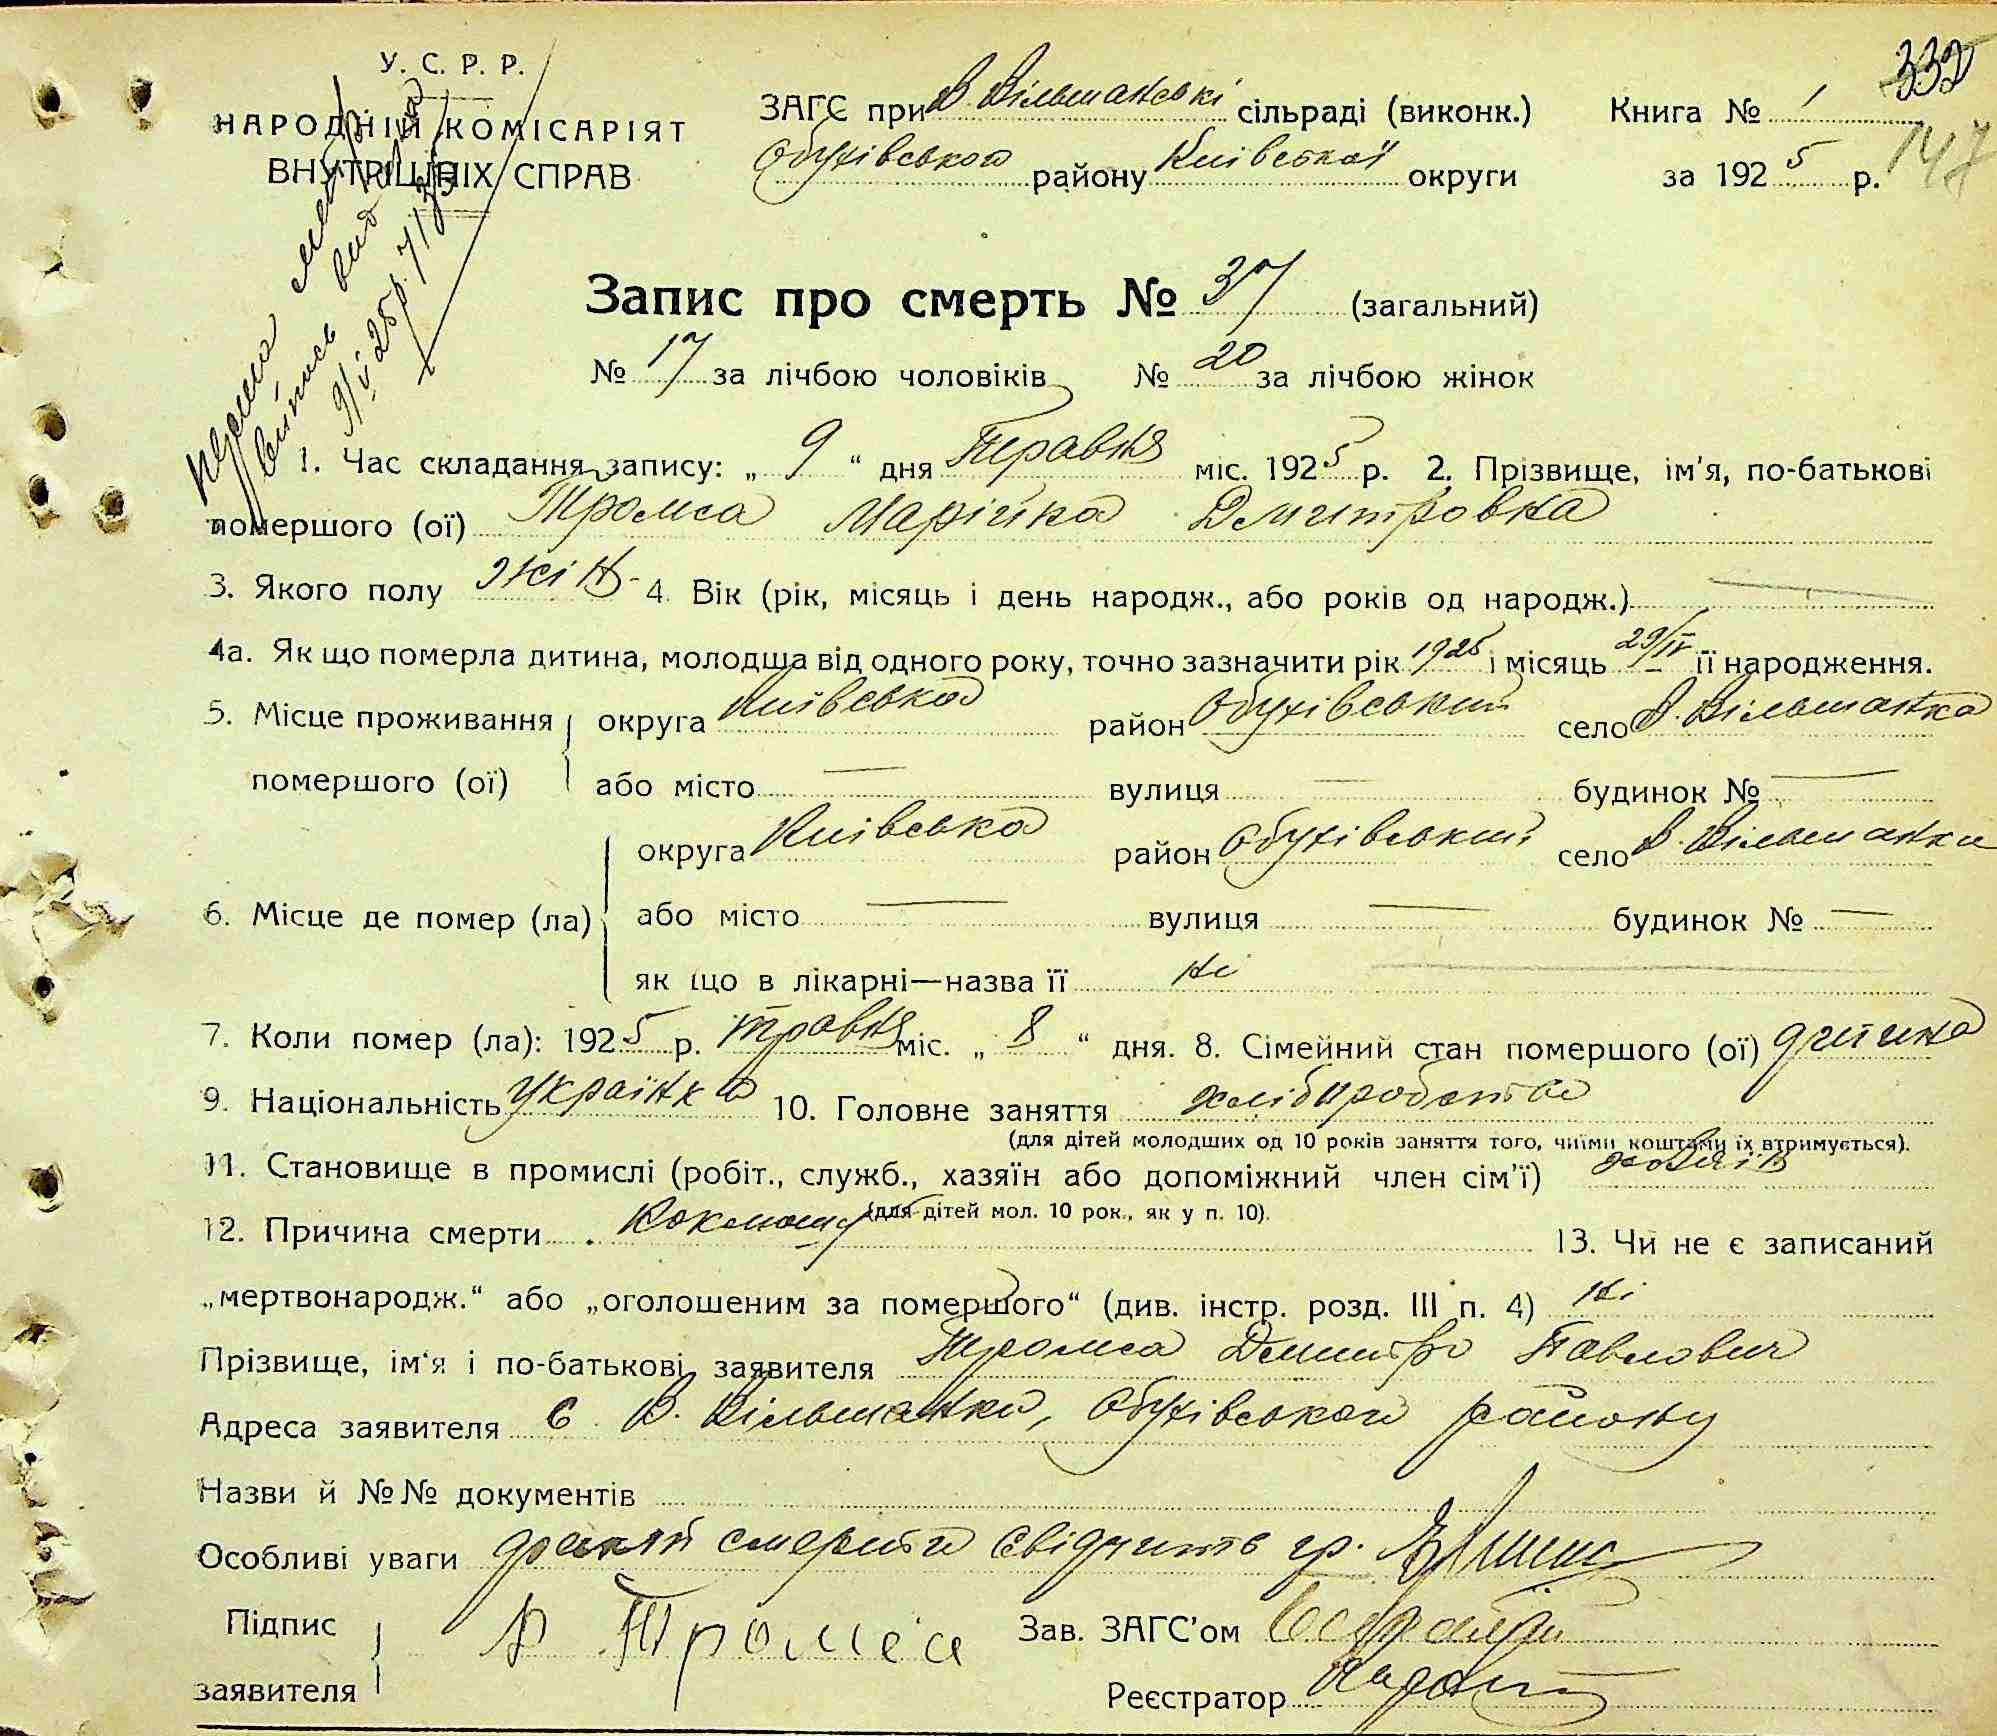 332
У. С. Р. Р.
НАРОДНІЙ КОМІСАРІЯТ
ВНУТРІШНІХ СПРАВ
ЗАГС при В. Вільшанські сільраді (виконк.) Книга № 1
147
Обухівськ району Київської округи за 1925 р.
Запис про смерть № 37 (загальний)
№ 17 за лічбою чоловіків № 20 за лічбою жінок
1. Час складання запису: „ 9 “ дня Травня міс. 1925 р. 2. Прізвище, ім'я, по-батькові
помершого (ої) Тромса Марійка Дмитровка
3. Якого полу жін- 4. Вік (рік, місяць і день народж., або років од народж.) —
4а. Як що померла дитина, молодша від одного року, точно зазначити рік 1925 і місяць 29/IV її народження.
5. Місце проживання округа Київська район Обухівський село В. Вільшанка
помершого (ої) або місто — вулиця — будинок № —
округа Київська район Обухівський село В. Вільшанка
6. Місце де помер (ла) або місто — вулиця — будинок № —
як що в лікарні—назва її ні
7. Коли помер (ла): 1925 р. травня міс. „ 8 “ дня. 8. Сімейний стан помершого (ої) дитина
9. Національність українка 10. Головне заняття хліборобство
(для дітей молодших од 10 років заняття того, чиїми коштами їх втримується).
11. Становище в промислі (робіт., служб., хазяїн або допоміжний член сім'ї) хозяїн
(для дітей мол. 10 рок., як у п. 10).
12. Причина смерти Коклюш 13. Чи не є записаний
„мертвонародж.“ або „оголошеним за помершого“ (див. інстр. розд. III п. 4) ні
Прізвище, ім'я і по-батькові заявителя Тромса Дмитро Павлович
Адреса заявителя с. В. Вільшанка, Обухівського району
Назви й №№ документів
Особливі уваги факт смерти свідчить гр.
Підпис Д Тромса Зав. ЗАГС'ом
заявителя Реєстратор